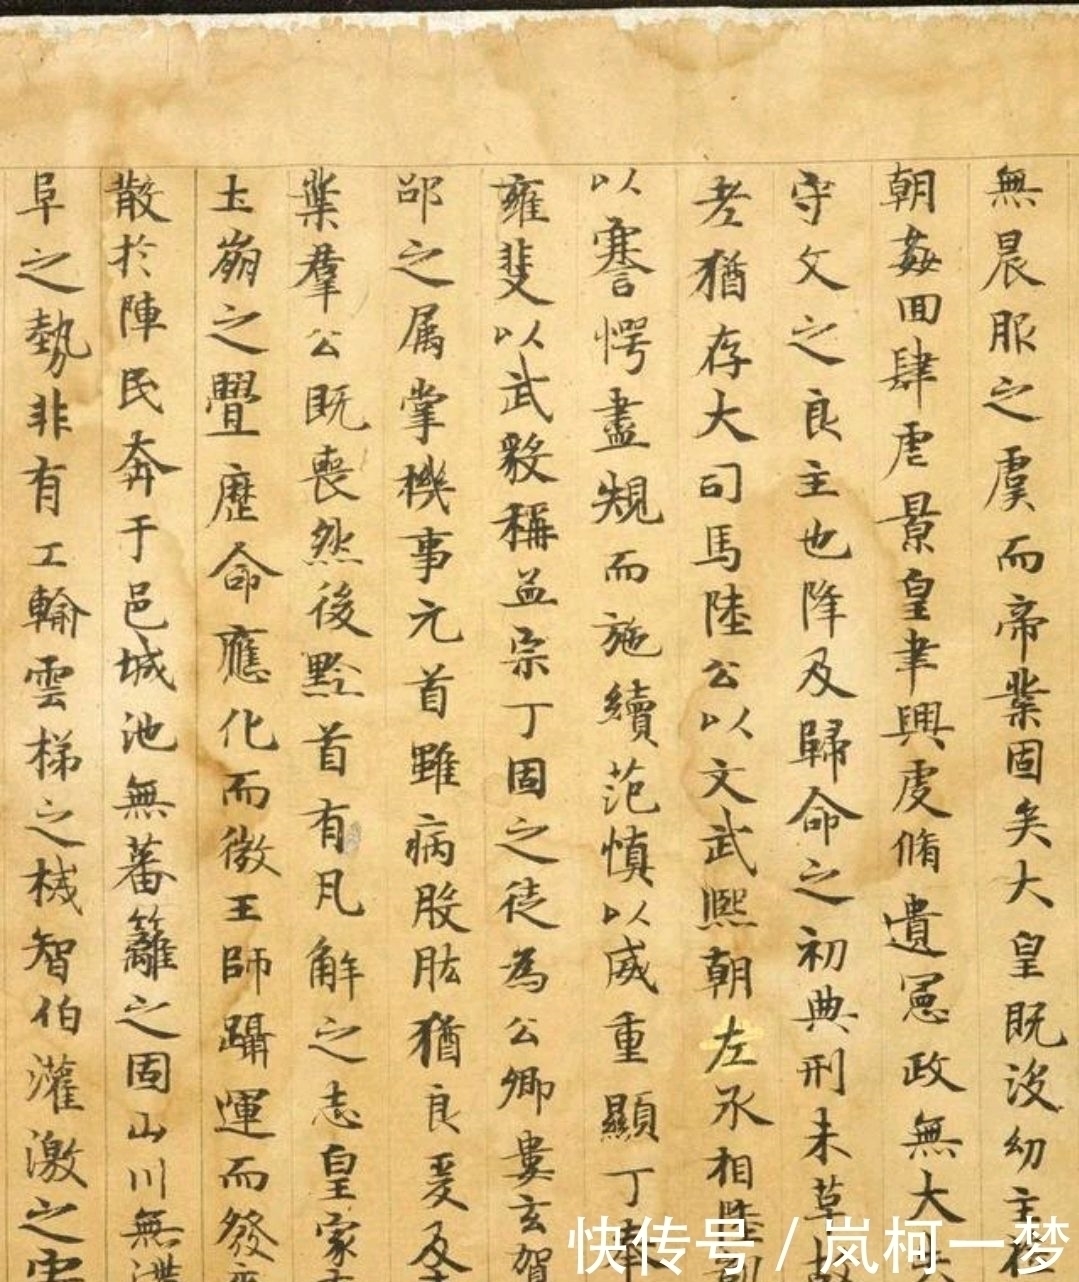 無晨服之虞而帝業固矣大皇既没幼主
朝姦回肆虐景皇聿興虔脩遺憲政無大
守文之良主也降及歸命之初典刑未
老猶存大司馬陸公以文武熙朝左丞相陸
以謇愕盡規而施績范慎以威重顯丁奉
離斐以武毅稱孟宗丁固之徒為公卿婁玄賀
邵之属掌機事元首雖病股肱猶良爰及
業羣公既喪然後黔首有瓦解之志皇家
土崩之舋歷命應化而微王師躡運而發
散於陣民奔于邑城池無蕃籬之固山川無
阜之勢非有工輸雲梯之械智伯灌激之害
快传号/岚柯一梦